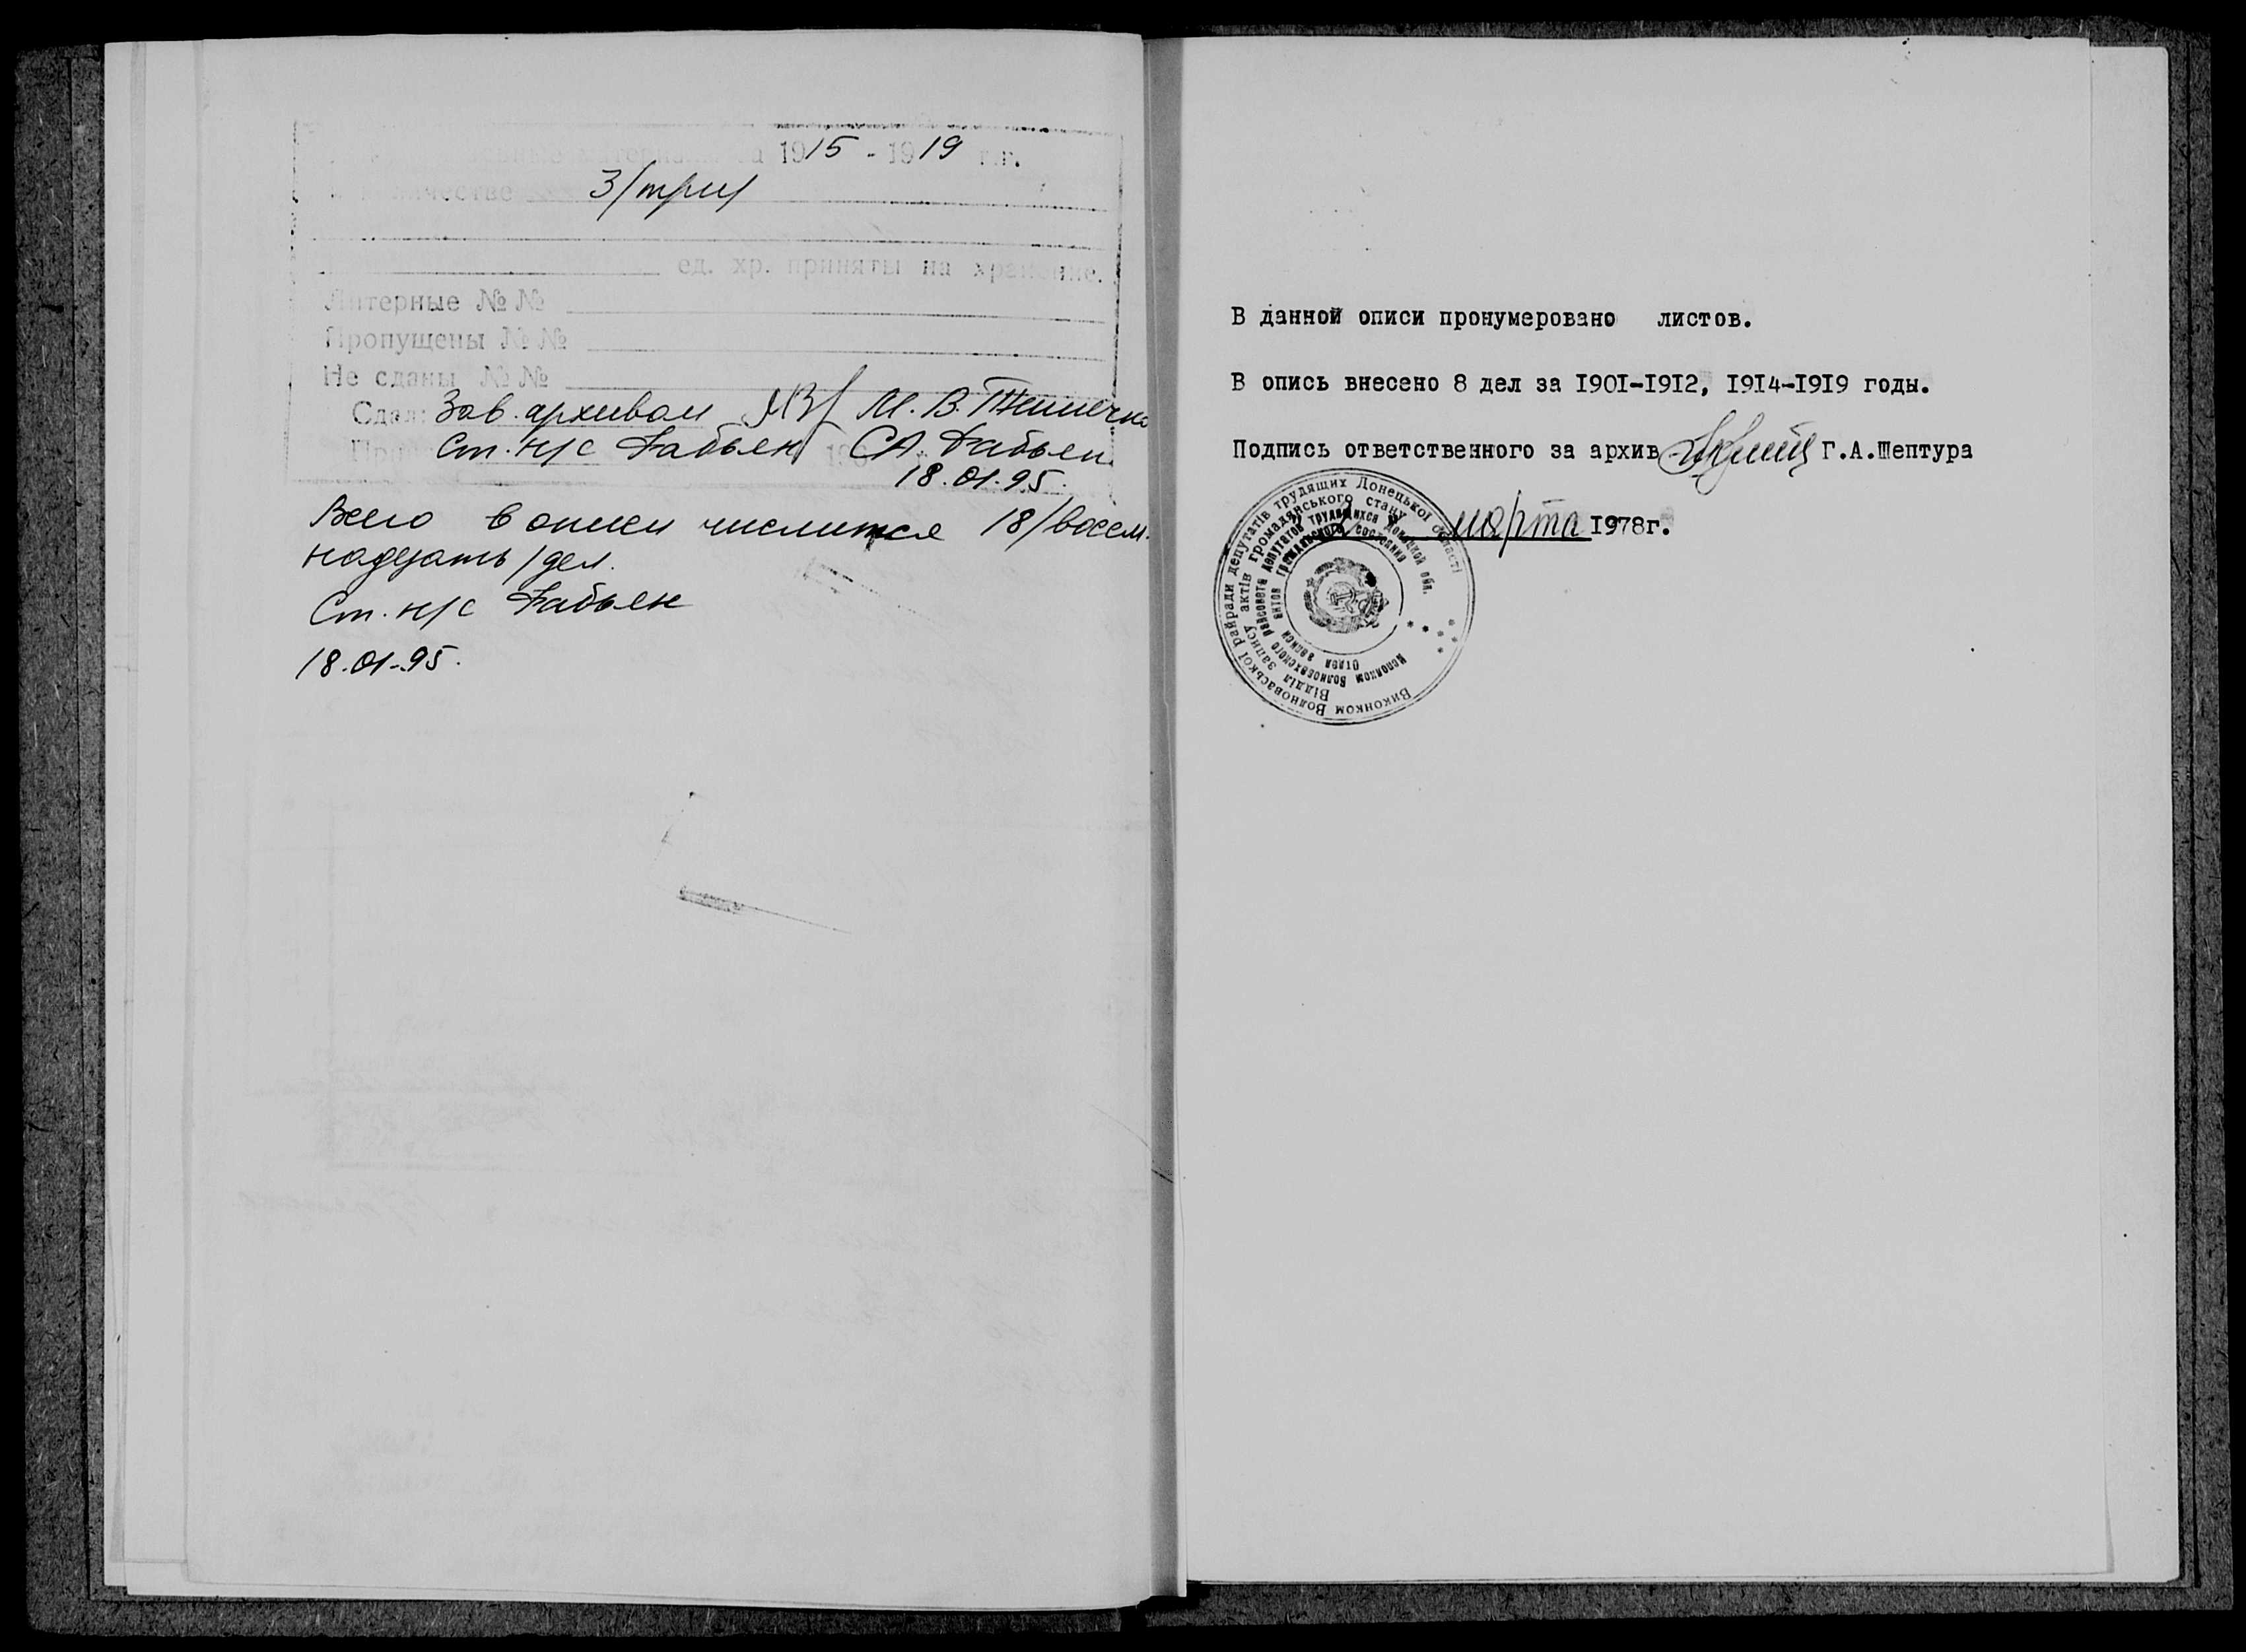 материалы за 1915 - 1919 г.г.
количестве 3/три/
ед. хр. приняты на хранение.
Литерные №№
Пропущены №№
Не сданы №№
Сдал: Зав. архивом М. В.
Ст. н/с Бабьен С.А. Бабьен
18.01.95.
Всего в описи числится 18/восем-
надцать/дел.
Ст. н/с Бабьен
18.01.95.
В данной описи пронумеровано листов.
В опись внесено 8 дел за I90I-I9I2, I9I4-I9I9 годы.
Подпись ответственного за архив Г.А.Шептура
марта I978г.
Виконком Волноваської райради депутатів трудящих Донецької області
Відділ запису актів громадянського стану
Исполком Волновахского райсовета депутатов трудящихся Донецкой обл.
Отдел записи актов гражданского состояния